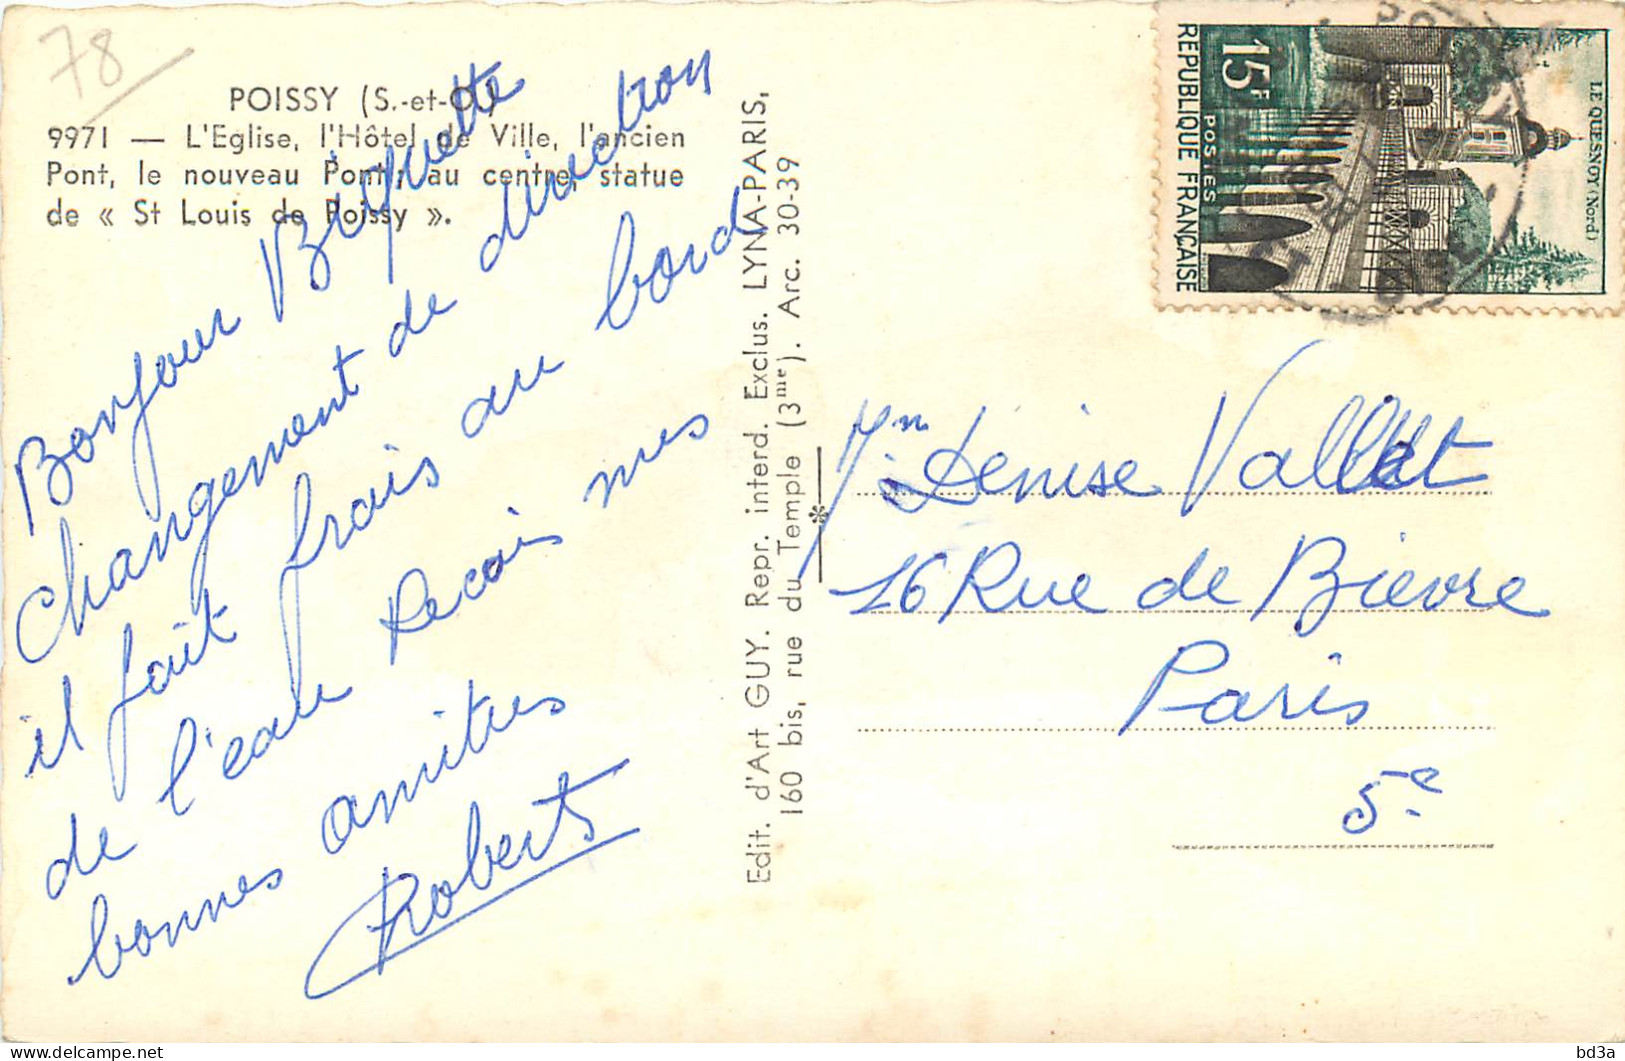 78
POISSY (S.-et-O.)
9971 — L'Eglise, l'Hôtel de Ville, l'ancien
Pont, le nouveau Pont ; au centre, statue
de « St Louis de Poissy ».
Bonjour Biquette
Changement de direction
il fait frais au bord
de l'eau Recois mes
bonnes amities
Roberts
Edit. d'Art GUY. Repr. interd. Exclus. LYNA-PARIS,
160 bis, rue du Temple (3me). Arc. 30-39
15F
POSTES
REPUBLIQUE FRANÇAISE
LE QUESNOY (Nord)
Denise Vallet
16 Rue de Bievre
Paris
5e
bd3a